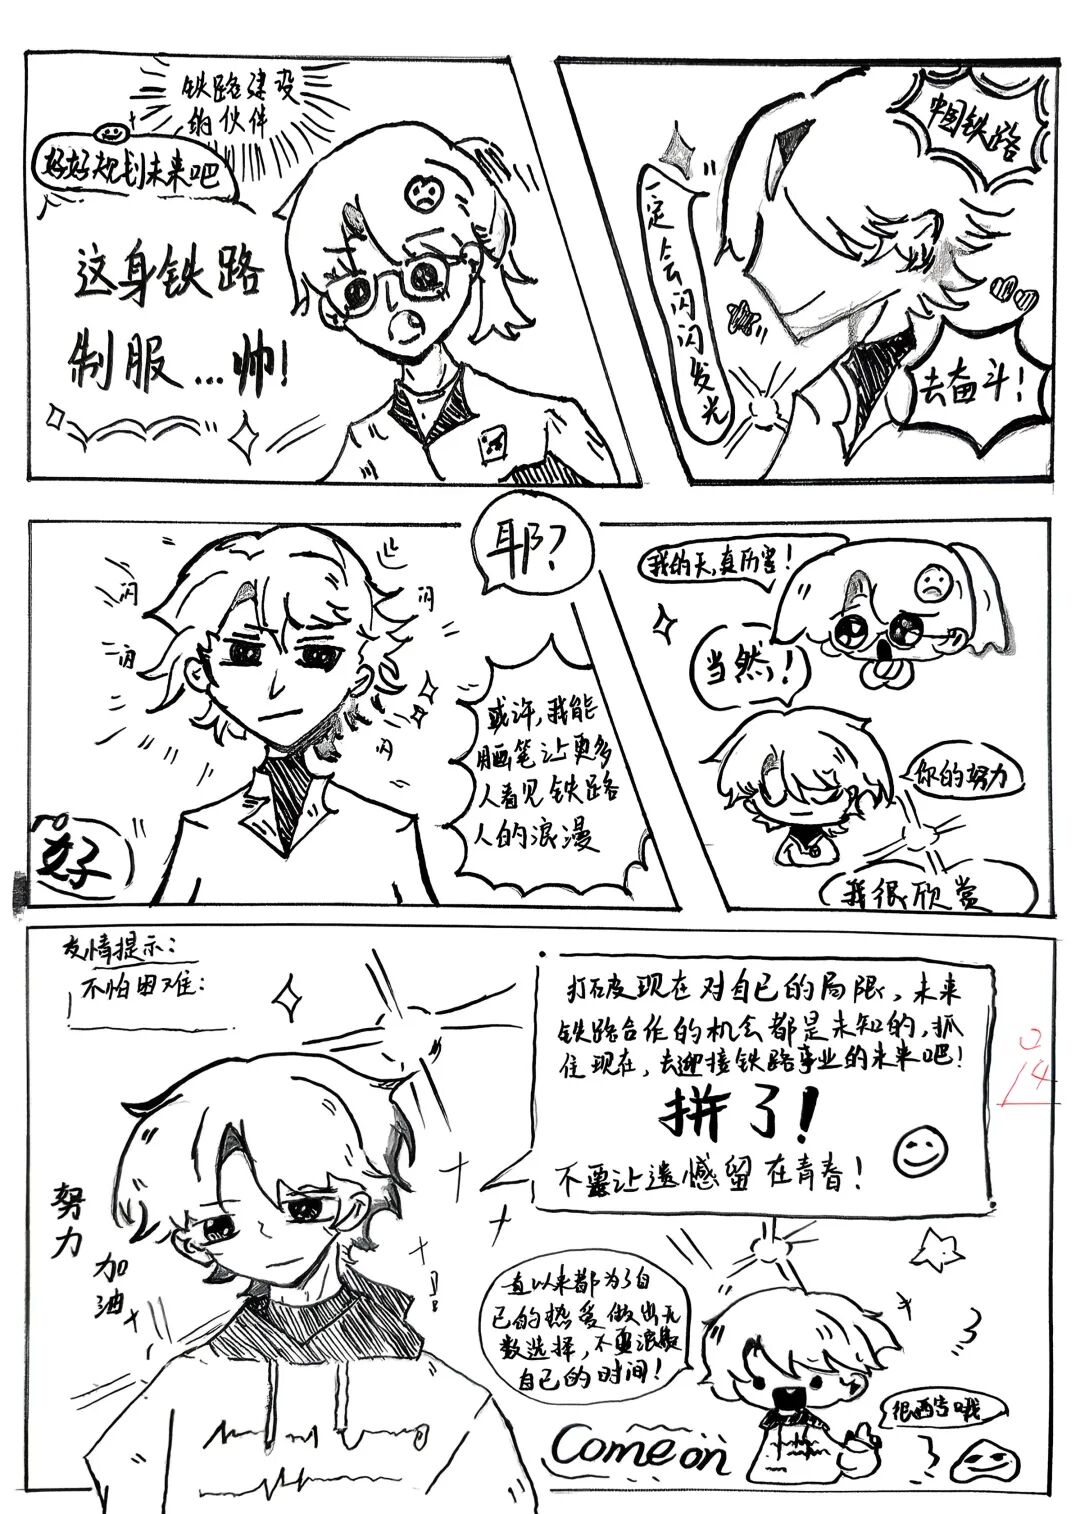 铁路建设
的伙伴
好好规划未来吧
这身铁路
制服...帅!
中国铁路
一定会闪闪发光
去奋斗!
耶?
闪
闪
闪
闪
或许,我能
用画笔让更多
人看见铁路
人的浪漫
好
我的天,真厉害!
当然!
你的努力
我很欣赏
友情提示:
不怕困难:
打破现在对自己的局限,未来
铁路合作的机会都是未知的,抓
住现在,去迎接铁路事业的未来吧!
拼了!
不要让遗憾留在青春!
努力
加油
!
直以来都为了自
己的热爱做出无
数选择,不要浪费
自己的时间!
Come on
很酷哦